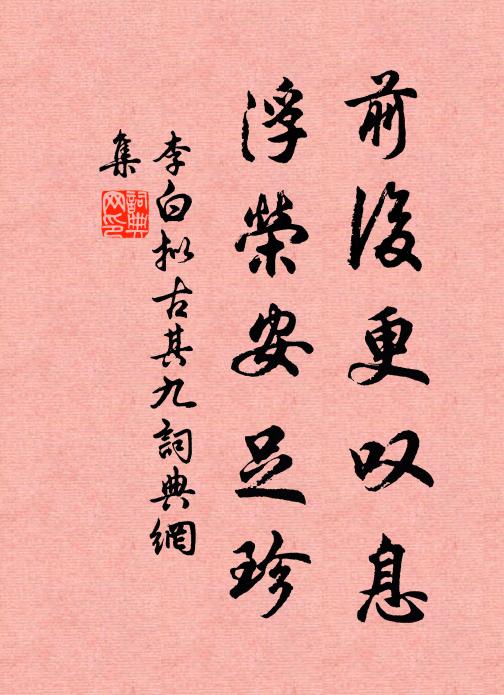 前後更叹息
浮榮安足珍
李白拟古其九詞典網
集
詞典网印